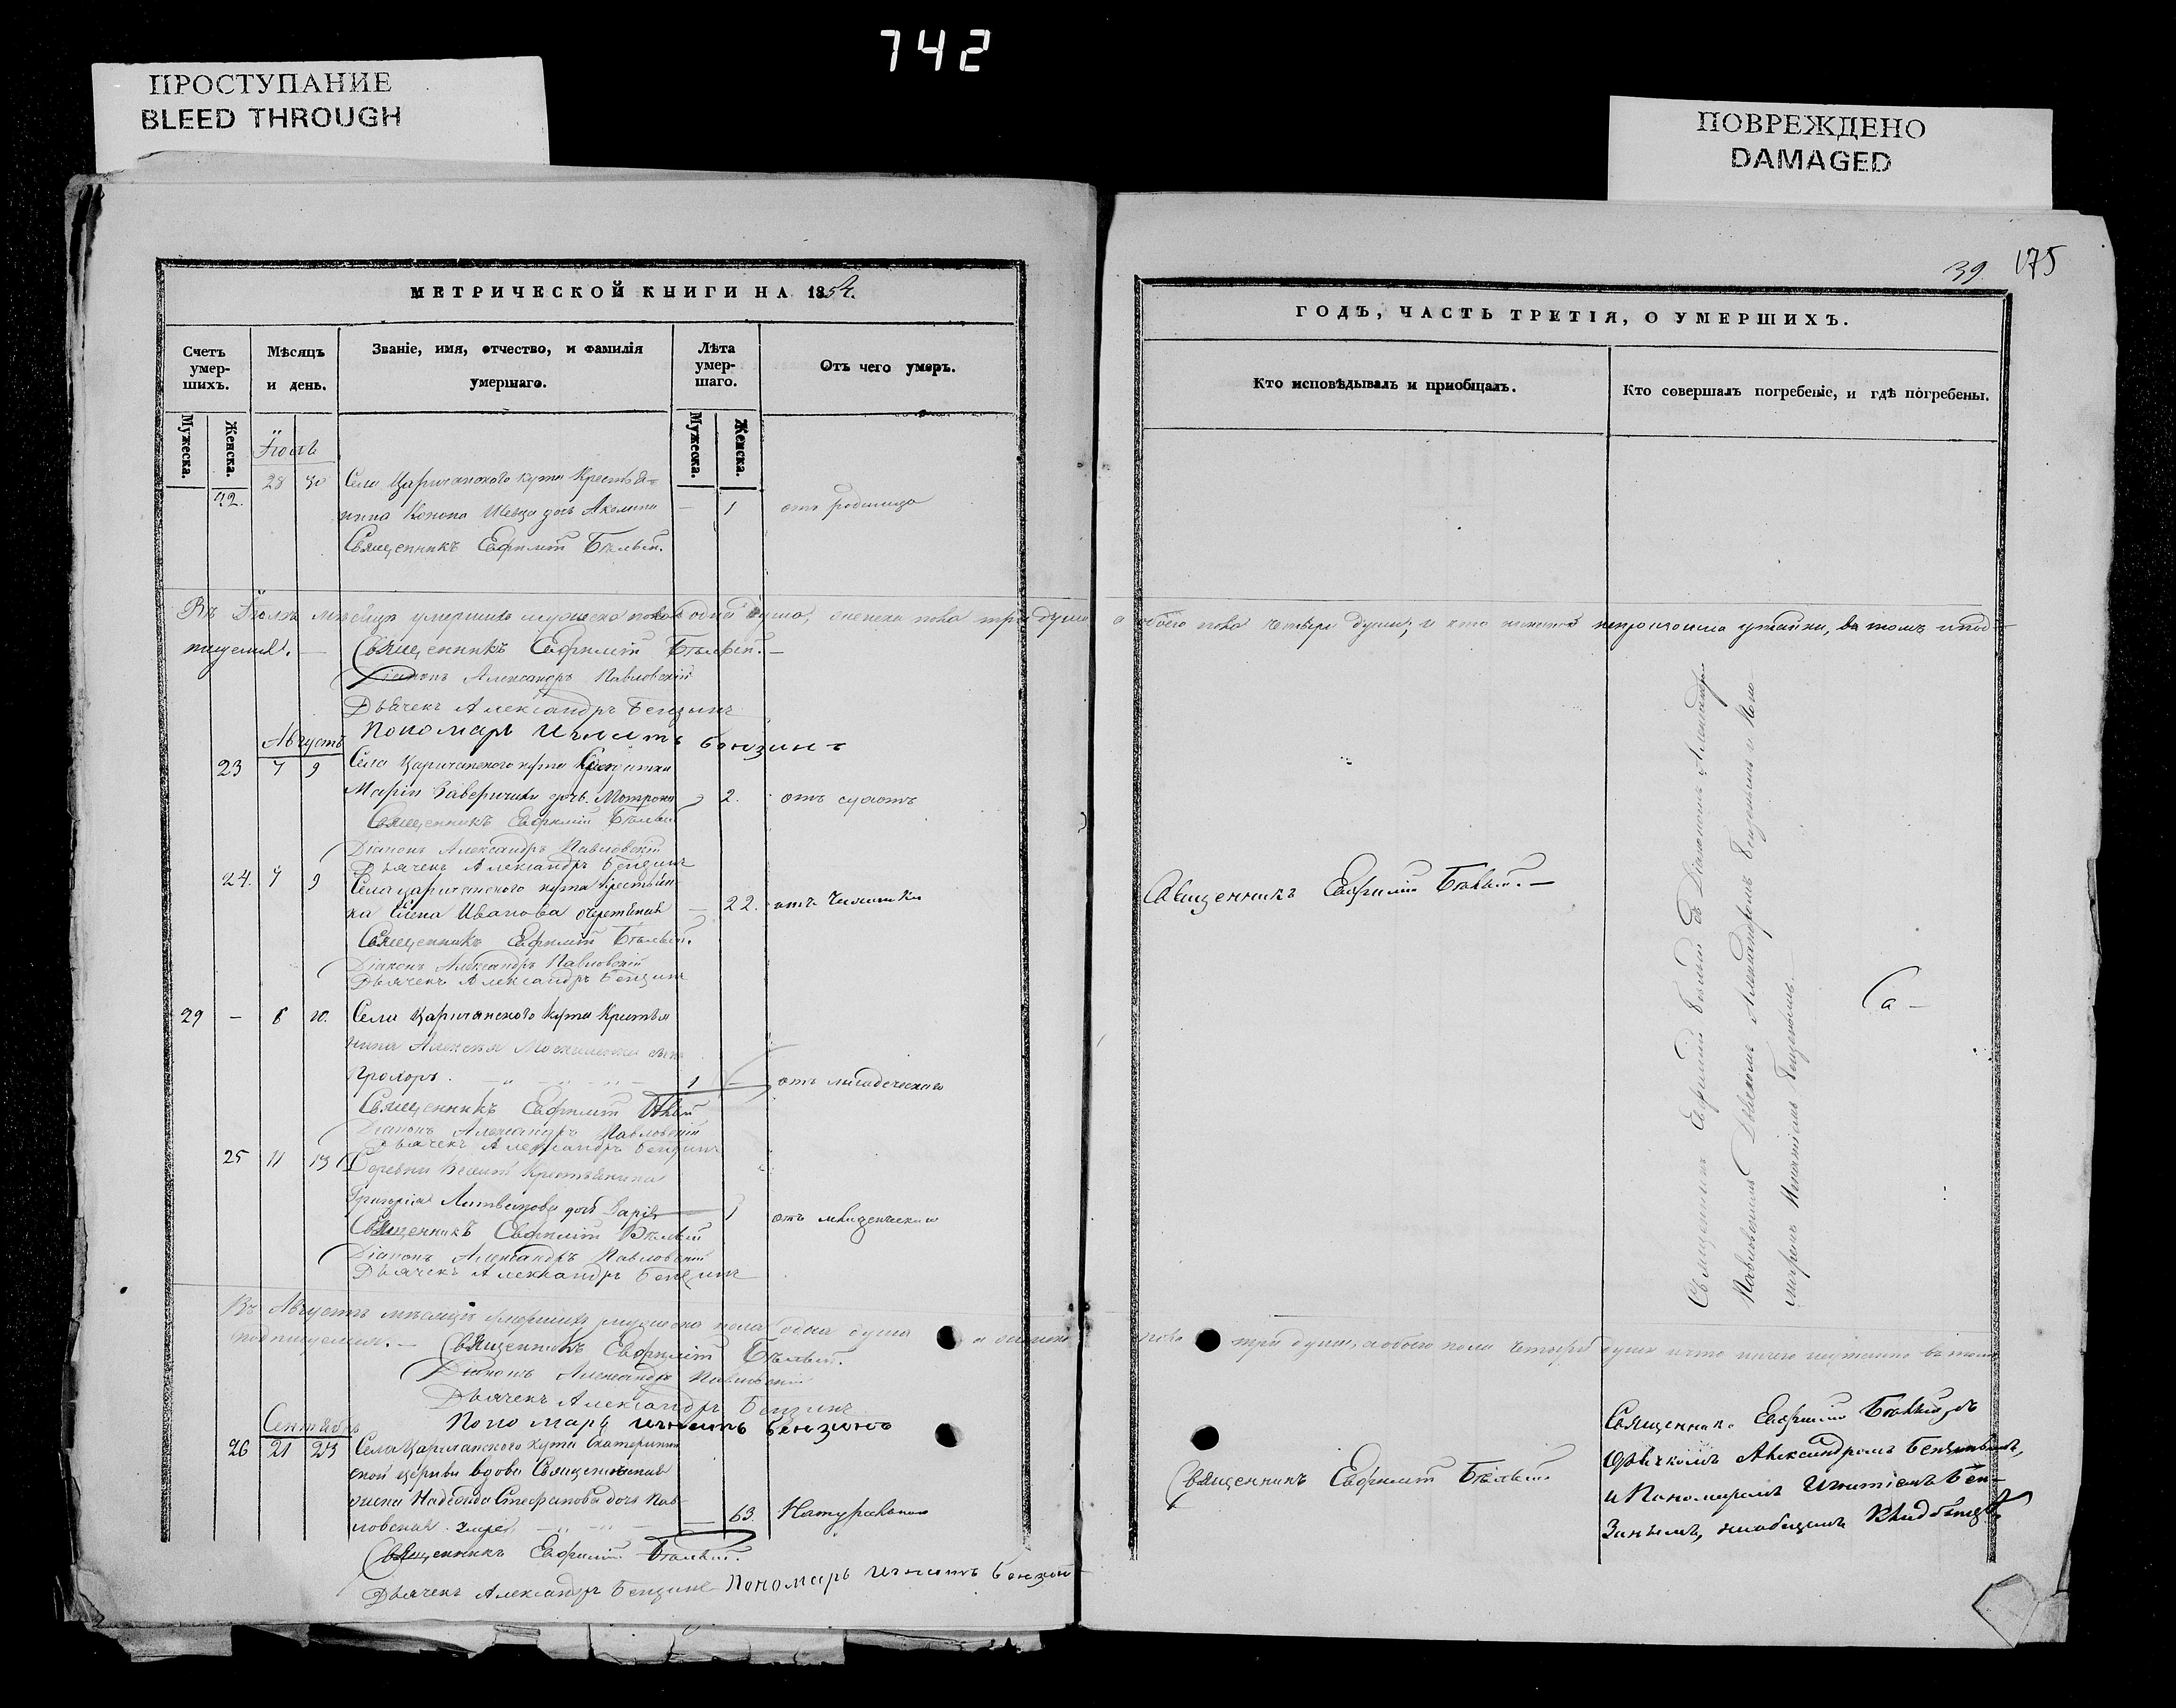 742
ПРОСТУПАНИЕ
BLEED THROUGH
ПОВРЕЖДЕНО
DAMAGED
39 175
МЕТРИЧЕСКОЙ КНИГИ НА 1854.
Счетъ умершихъ.
Мѣсяцъ и день.
Званіе, имя, отчество, и фамилія умершаго.
Лѣта умершаго.
Отъ чего умеръ.
Мужеска.
Женска.
Мужеска.
Женска.
ГОДЪ, ЧАСТЬ ТРЕТІЯ, О УМЕРШИХЪ.
Кто исповѣдывалъ и пріобщалъ.
Кто совершалъ погребеніе, и гдѣ погребены.
Іюль
22. 28 30 Села Царичанского кута Крестья=
нина Конона Шевца дочь Акилина — 1 отъ родимца
Священникъ Евфимій Бѣлый.
Въ Іюлѣ мѣсяцѣ умершихъ мужеска пола одна душа, женска пола три души а обоего пола четыри души, и что
утайки, въ томъ и под-
писуемся. — Священникъ Евфимій Бѣлый. —
Діаконъ Александръ Павловскій
Дьячекъ Александръ Бензинъ
Пономарь Игнатъ Бензинъ
Августъ
23 7 9 Села Царичанского кута
Маріи дочь Мотрона 2. отъ сухотъ
Священникъ Евфимій Бѣлый
Діаконъ Александръ Павловскій
Дьячекъ Александръ Бензинъ
24. 7 9 Села царичанского кута крестьян-
ка Елена Иванова — 22. отъ
Священникъ Евфимій Бѣлый.
Діаконъ Александръ Павловскій
Дьячекъ Александръ Бензинъ
Священникъ Евфимій Бѣлый. —
29 — 8 10. Села Царичанского кута Крестья
нина Алексѣя сынъ
Прохоръ. 1 — отъ младенческаго
Священникъ Евфимій Бѣлый
Діаконъ Александръ Павловскій
Дьячекъ Александръ Бензинъ
25 11 13 Деревни Крестьянина
Григорія Литвинова дочь Дарія — 1 отъ младенческаго
Священникъ Евфимій Бѣлый
Діаконъ Александръ Павловскій
Дьячекъ Александръ Бензинъ
Священникъ Евфимій Бѣлый съ Діакономъ Александромъ
Павловскимъ Дьячкомъ Александромъ Бензинымъ и Поно
маремъ Игнатіемъ Бензинымъ.
Въ Августѣ мѣсяцѣ умершихъ мужеска пола одна душа а женска пола три души, а обоего пола четыри души и что ничего не утаенно въ томъ
подписуемся. — Священникъ Евфимій Бѣлый.
Діаконъ Александръ Павловскій
Дьячекъ Александръ Бензинъ
Пономарь Игнатъ Бензинъ
Сентябрь
26 21 23 Села Царичанского кута Екатеринин
ской церкви вдова Священническая
жена Надежда Стефанова дочь Пав-
ловская — 63. Натурально
Священникъ Евфимій Бѣлый.
Дьячекъ Александръ Бензинъ Пономарь Игнатъ Бензинъ
Священникъ Евфимій Бѣлый.
Священникъ Евфимій Бѣлый, съ
Дьячкомъ Александромъ Бензинымъ,
и Пономаремъ Игнатіемъ Бен-
зинымъ, на общемъ Кладбищѣ